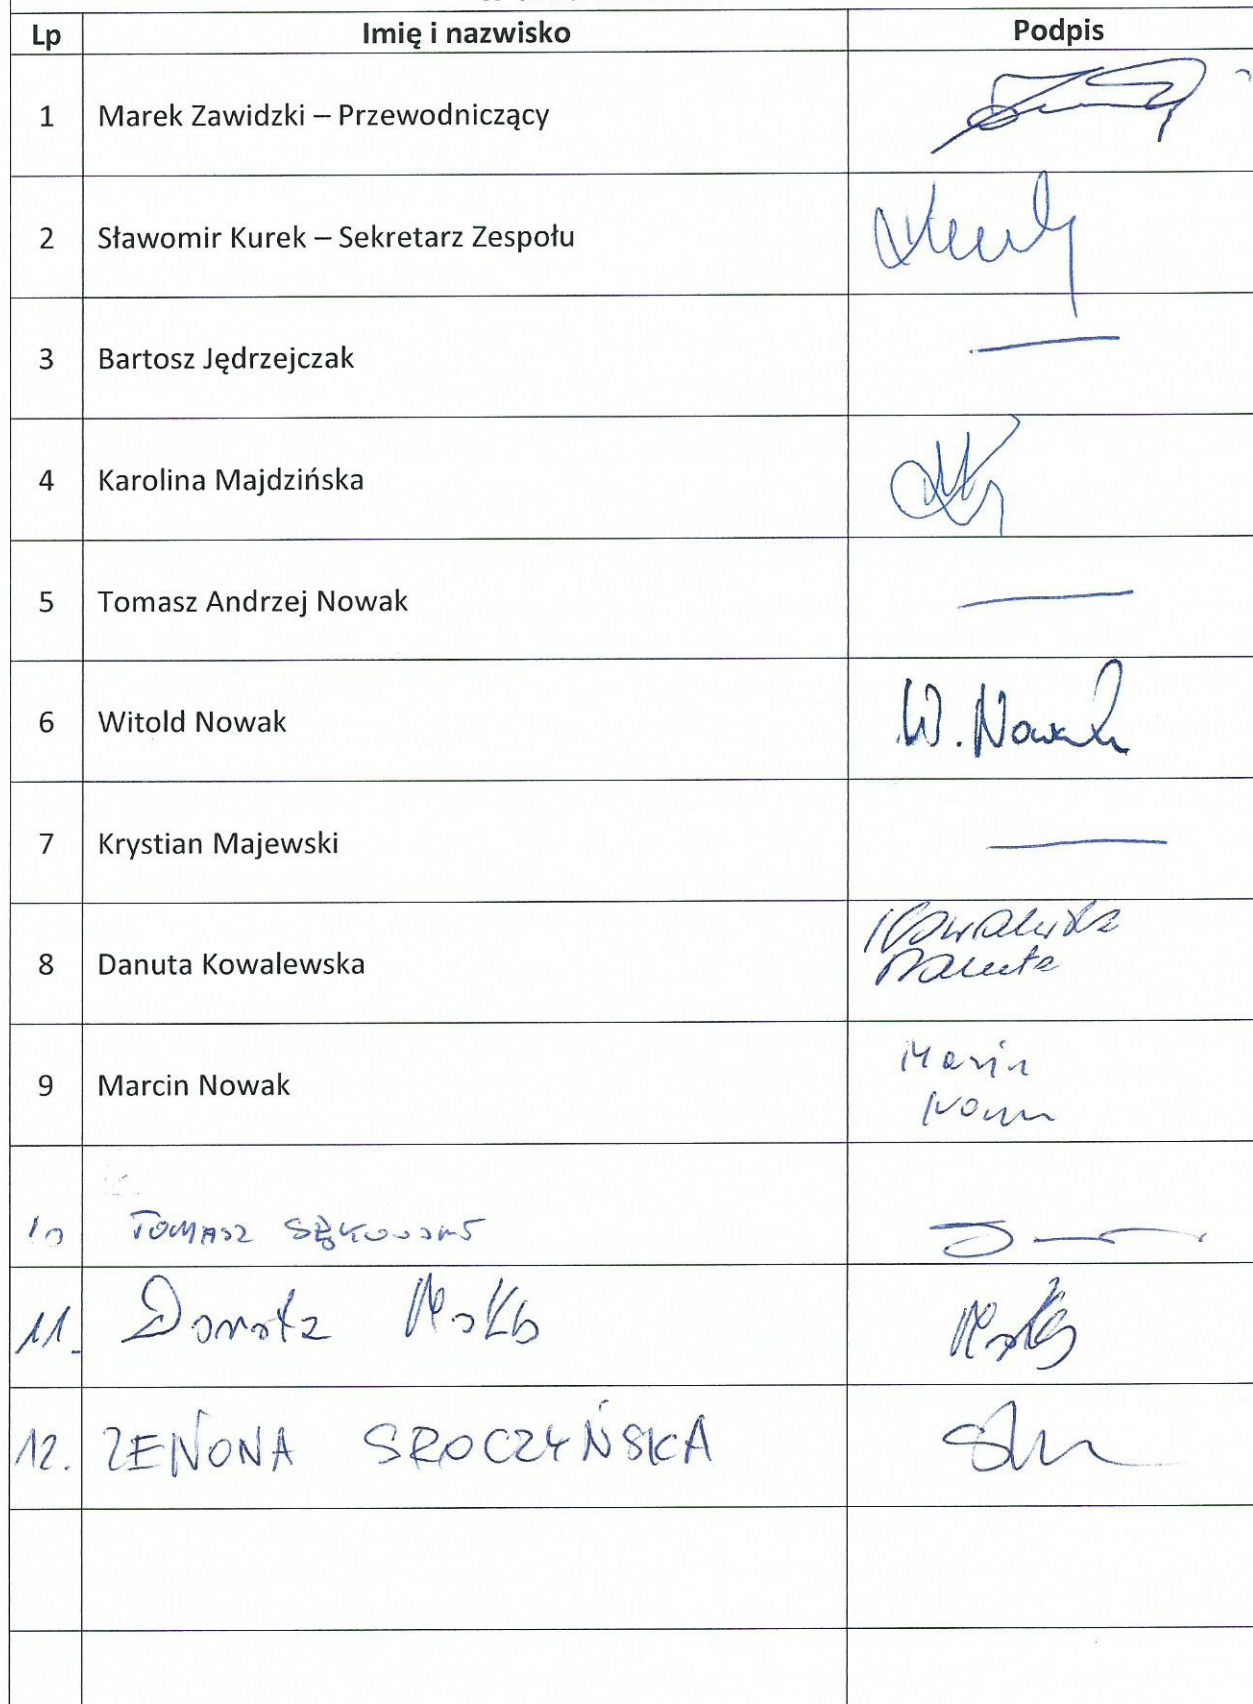 Lp Imię i nazwisko Podpis
1 Marek Zawidzki – Przewodniczący
2 Sławomir Kurek – Sekretarz Zespołu
3 Bartosz Jędrzejczak —
4 Karolina Majdzińska
5 Tomasz Andrzej Nowak —
6 Witold Nowak W. Nowak
7 Krystian Majewski —
8 Danuta Kowalewska Kowalewska
Danuta
9 Marcin Nowak Marcin
Nowak
10 TOMASZ
11. Dorota
12. ZENONA SROCZYŃSKA